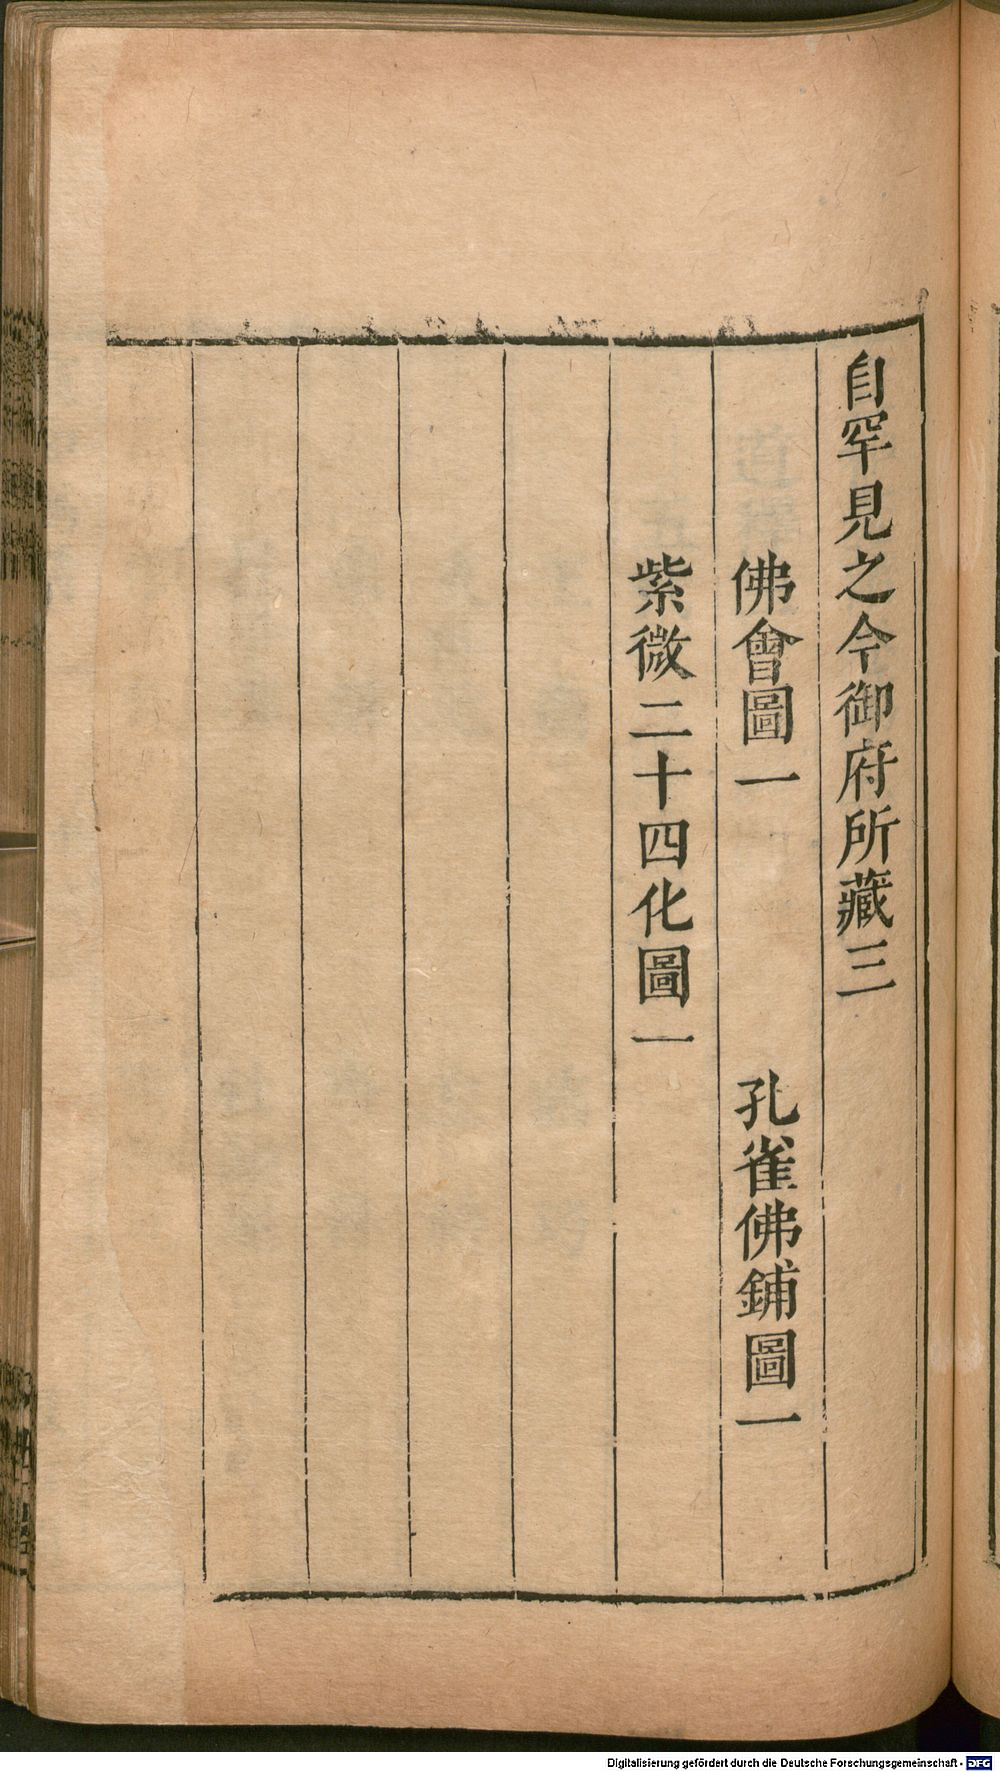 自罕見之今御府所藏三
佛會圖一　孔雀佛鋪圖一
紫微二十四化圖一
Digitalisierung gefördert durch die Deutsche Forschungsgemeinschaft - DFG